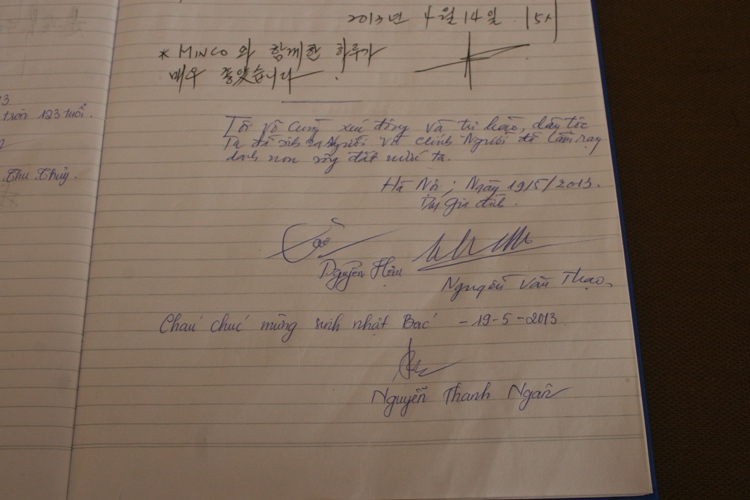 23.
tròn 123 tuổi.
Thu Thủy.
2013년 4월 14일. 15시
* MINCO 와 함께한 하루가
매우 좋았습니다.
Tôi vô cùng xúc động và tự hào, dân tộc
Ta đã sinh ra Người và chính Người đã làm rạng
danh non sông đất nước ta.
Hà Nội, Ngày 19/5/2013.
Nguyễn Văn Thạo,
Cháu chúc mừng sinh nhật Bác - 19-5-2013
Nguyễn Thanh Ngân